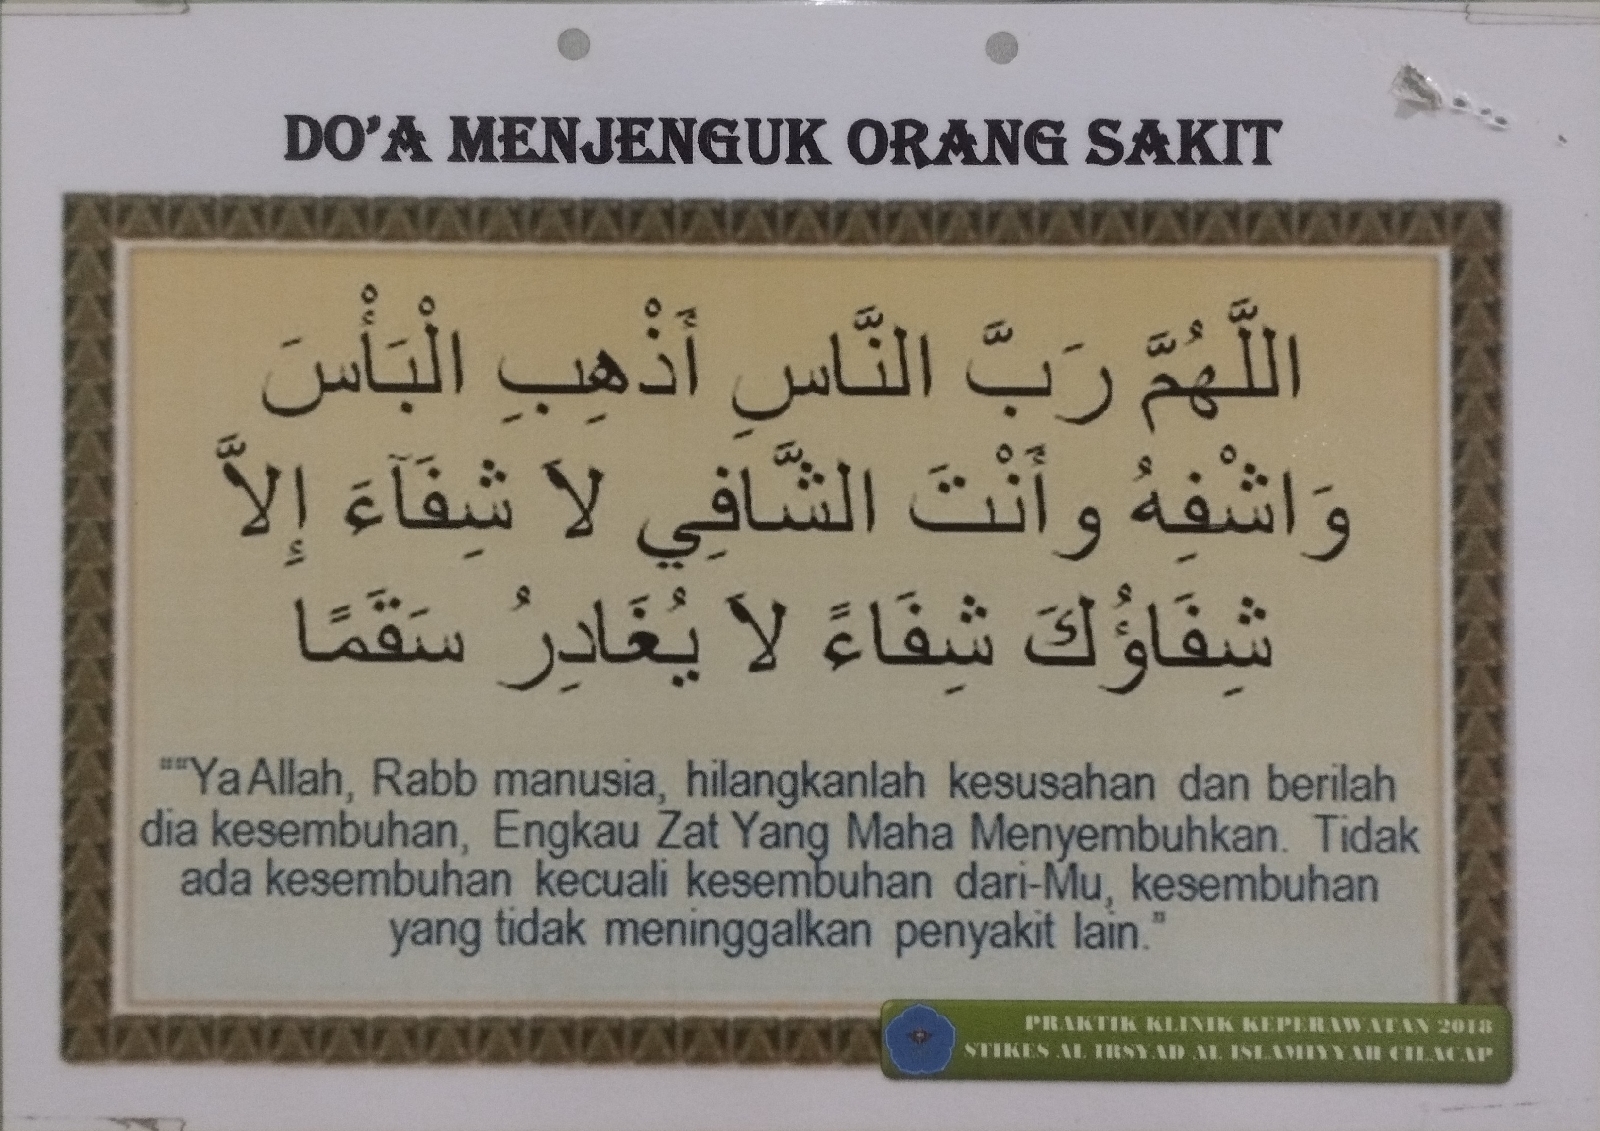 DO'A MENJENGUK ORANG SAKIT
اللَّهُمَّ رَبَّ النَّاسِ أَذْهِبِ الْبَأْسَ
وَاشْفِهُ وأَنْتَ الشَّافِي لاَ شِفَآءَ إِلاَّ
شِفَاؤُكَ شِفَاءً لاَ يُغَادِرُ سَقَمًا
““Ya Allah, Rabb manusia, hilangkanlah kesusahan dan berilah
dia kesembuhan, Engkau Zat Yang Maha Menyembuhkan. Tidak
ada kesembuhan kecuali kesembuhan dari-Mu, kesembuhan
yang tidak meninggalkan penyakit lain.”
PRAKTIK KLINIK KEPERAWATAN 2018
STIKES AL IRSYAD AL ISLAMIYYAH CILACAP